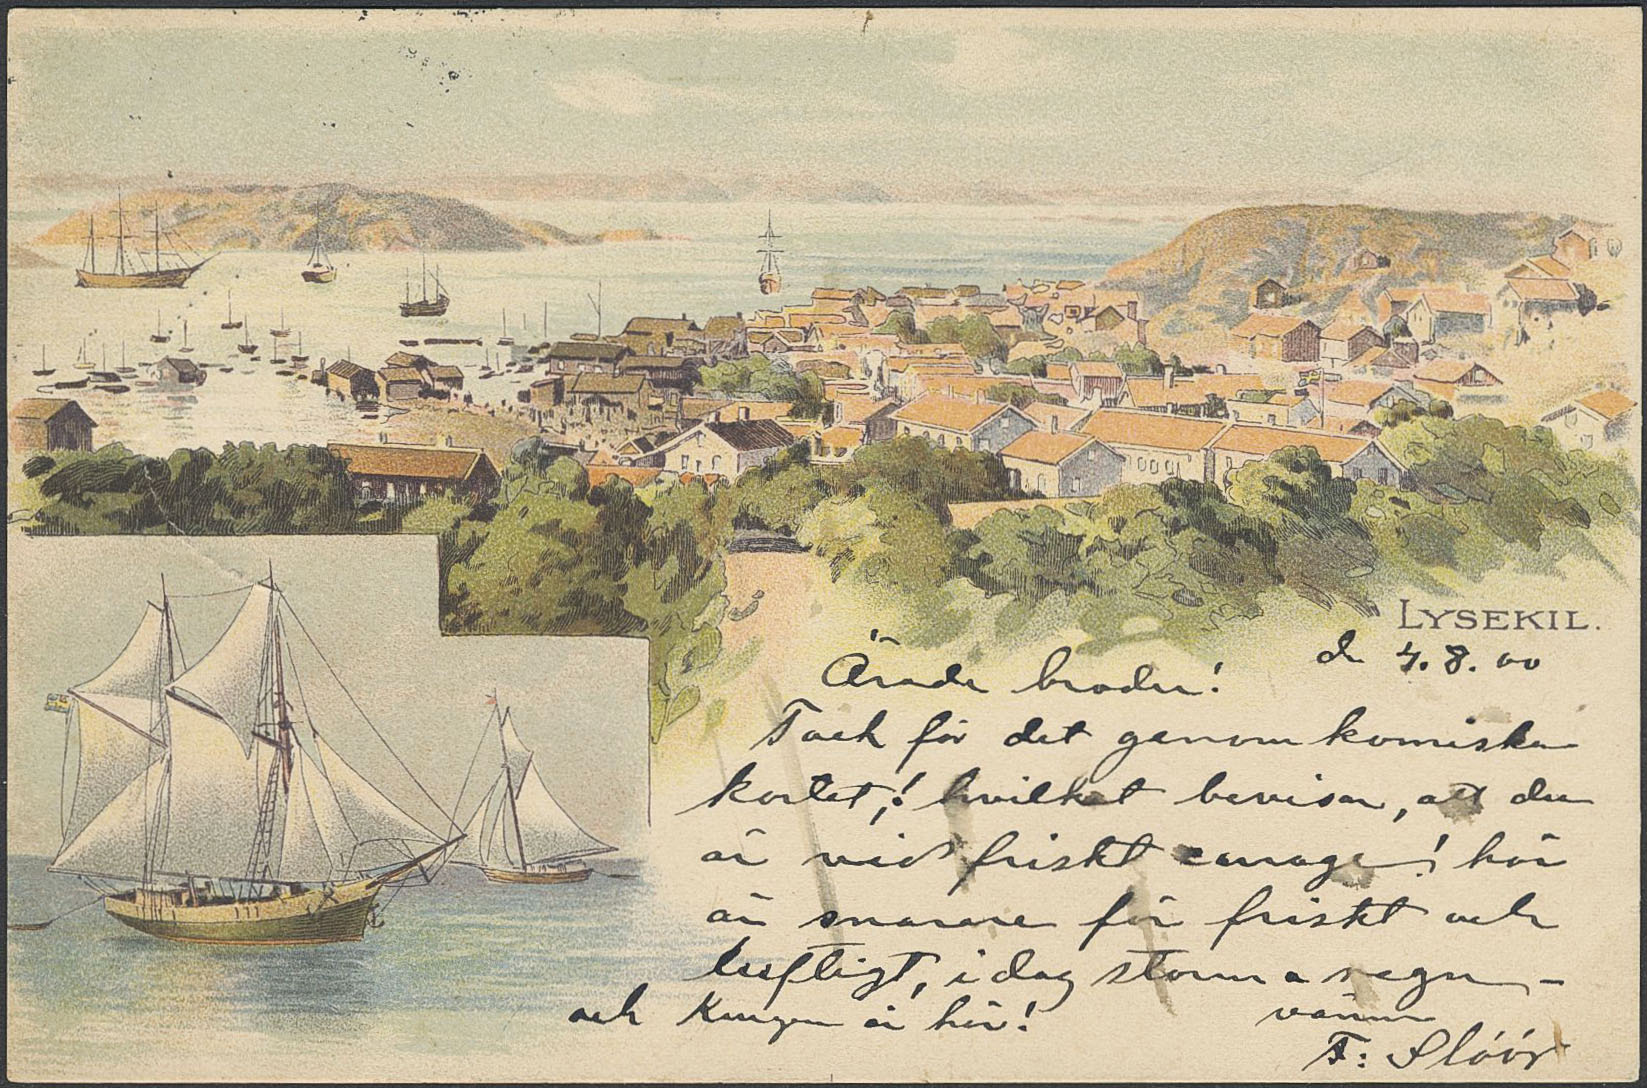 LYSEKIL.
d. 4.8.00
Ärade broder!
Tack för det genom komiska
kortet,! hvilket bevisar, att du
är vid friskt courage! här
är snarare för friskt och
luftigt, i dag storm o regn –
och Kungen är här! vännen
F: Slöör